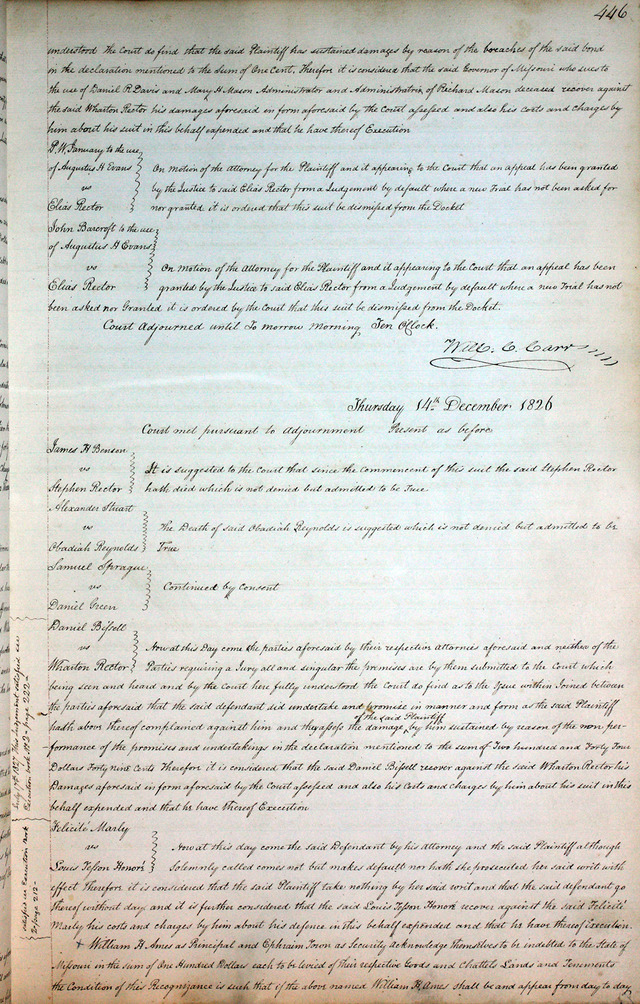 446
understood the Court do find that the said Plaintiff has sustained damages by reason of the breaches of the said bond
in the declaration mentioned to the Sum of One Cent. Therefore it is considered that the said Governor of Missouri who sues to
the use of Daniel R Davis and Mary H Mason Administrator and Administratrix of Richard Mason deceased recover against
the said Wharton Rector his damages aforesaid in form aforesaid by the Court assessed and also his costs and charges by
him about his suit in this behalf expended and that he have thereof Execution
P. W. January to the use
of Augustus H Evans
vs
Elias Rector
On motion of the Attorney for the Plaintiff and it appearing to the Court that an appeal has been granted
by the Justice to said Elias Rector from a Judgement by default where a new Trial has not been asked for
nor granted it is ordered that this suit be dismissed from the Docket
John Barcroft to the use
of Augustus H Evans
vs
Elias Rector
On motion of the Attorney for the Plaintiff and it appearing to the Court that an appeal has been
granted by the Justice to said Elias Rector from a Judgement by default where a new Trial has not
been asked nor Granted it is ordered by the Court that this suit be dismissed from the Docket.
Court Adjourned until To morrow Morning Ten OClock.
Will. C. Carr
Thursday 14th December 1826
Court met pursuant to adjournment Present as before
James H Benson
vs
Stephen Rector
It is suggested to the Court that since the commencent of this suit the said Stephen Rector
hath died which is not denied but admitted to be True
Alexander Stuart
vs
Obadiah Reynolds
The Death of said Obadiah Reynolds is suggested which is not denied but admitted to be
True
Samuel Sprague
vs
Daniel Green
Continued by Consent
Daniel Bissell
vs
Wharton Rector
Now at this Day come the parties aforesaid by their respective attornies aforesaid and neither of the
Parties requiring a Jury all and singular the premises are by them submitted to the Court which
being seen and heard and by the Court here fully understood the Court do find as to the Issue within Joined between
the parties aforesaid that the said defendant did undertake and promise in manner and form as the said Plaintiff
hath above thereof complained against him and they assess the damage of the said Plaintiff by him sustained by reason of the non per-
formance of the promises and undertakings in the declaration mentioned to the sum of Two hundred and Forty Four
Dollars Forty nine Cents Therefore it is considered that the said Daniel Bissell recover against the said Wharton Rector his
Damages aforesaid in form aforesaid by the Court assessed and also his Costs and Charges by him about his suit in this
behalf expended and that he have thereof Execution
Felicité Marly
vs
Louis Tesson Honoré
Now at this day come the said Defendant by his Attorney and the said Plaintiff although
Solemnly called comes not but makes default nor hath she prosecuted her said writ with
effect Therefore it is considered that the said Plaintiff take nothing by her said writ and that the said defendant go
thereof without day and it is further considered that the said Louis Tesson Honoré recover against the said Felicité
Marly his costs and charges by him about his defence in this behalf expended and that he have thereof Execution.
+ William H Ames as Principal and Ephraim Town as Security acknowledge themselves to be indebted to the State of
Missouri in the sum of One Hundred Dollars each to be levied of their respective Goods and Chattels Lands and Tenements
the Condition of this Recognizance is such if the above named William H Ames shall be and appear from day to day
1827 this Judgment satisfied see
Execution Book No 2 page 222
satisfied see Execution Book
2 page 212